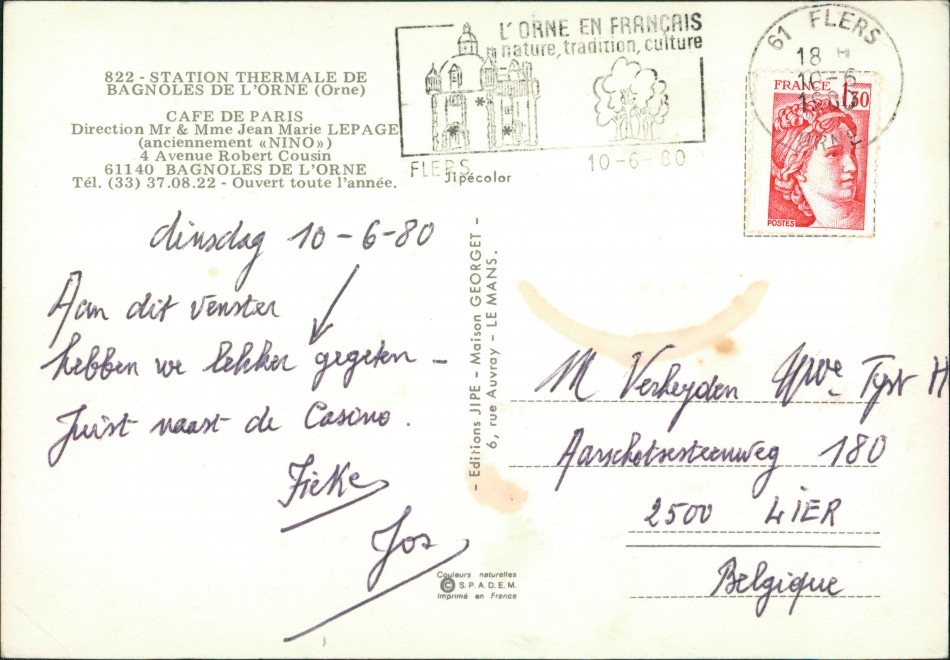 822 - STATION THERMALE DE
BAGNOLES DE L'ORNE (Orne)
CAFE DE PARIS
Direction Mr & Mme Jean Marie LEPAGE
(anciennement «NINO»)
4 Avenue Robert Cousin
61140 BAGNOLES DE L'ORNE
Tél. (33) 37.08.22 - Ouvert toute l'année.
L'ORNE EN FRANÇAIS
nature, tradition, culture
FLERS
10-6-80
Jipécolor
61 FLERS
18 H
10-6
1980
ORNE
FRANCE 1,30
POSTES
dinsdag 10-6-80
Aan dit venster
hebben we lekker gegeten -
Juist naast de Casino.
Fieke
Jos
- Editions JIPE - Maison GEORGET -
6, rue Auvray - LE MANS.
M Verheyden Wwe Tyst H
Aarschotsesteenweg 180
2500 LIER
Belgique
Couleurs naturelles
© S.P.A.D.E.M.
Imprimé en France